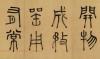 開物
成務
器用
常